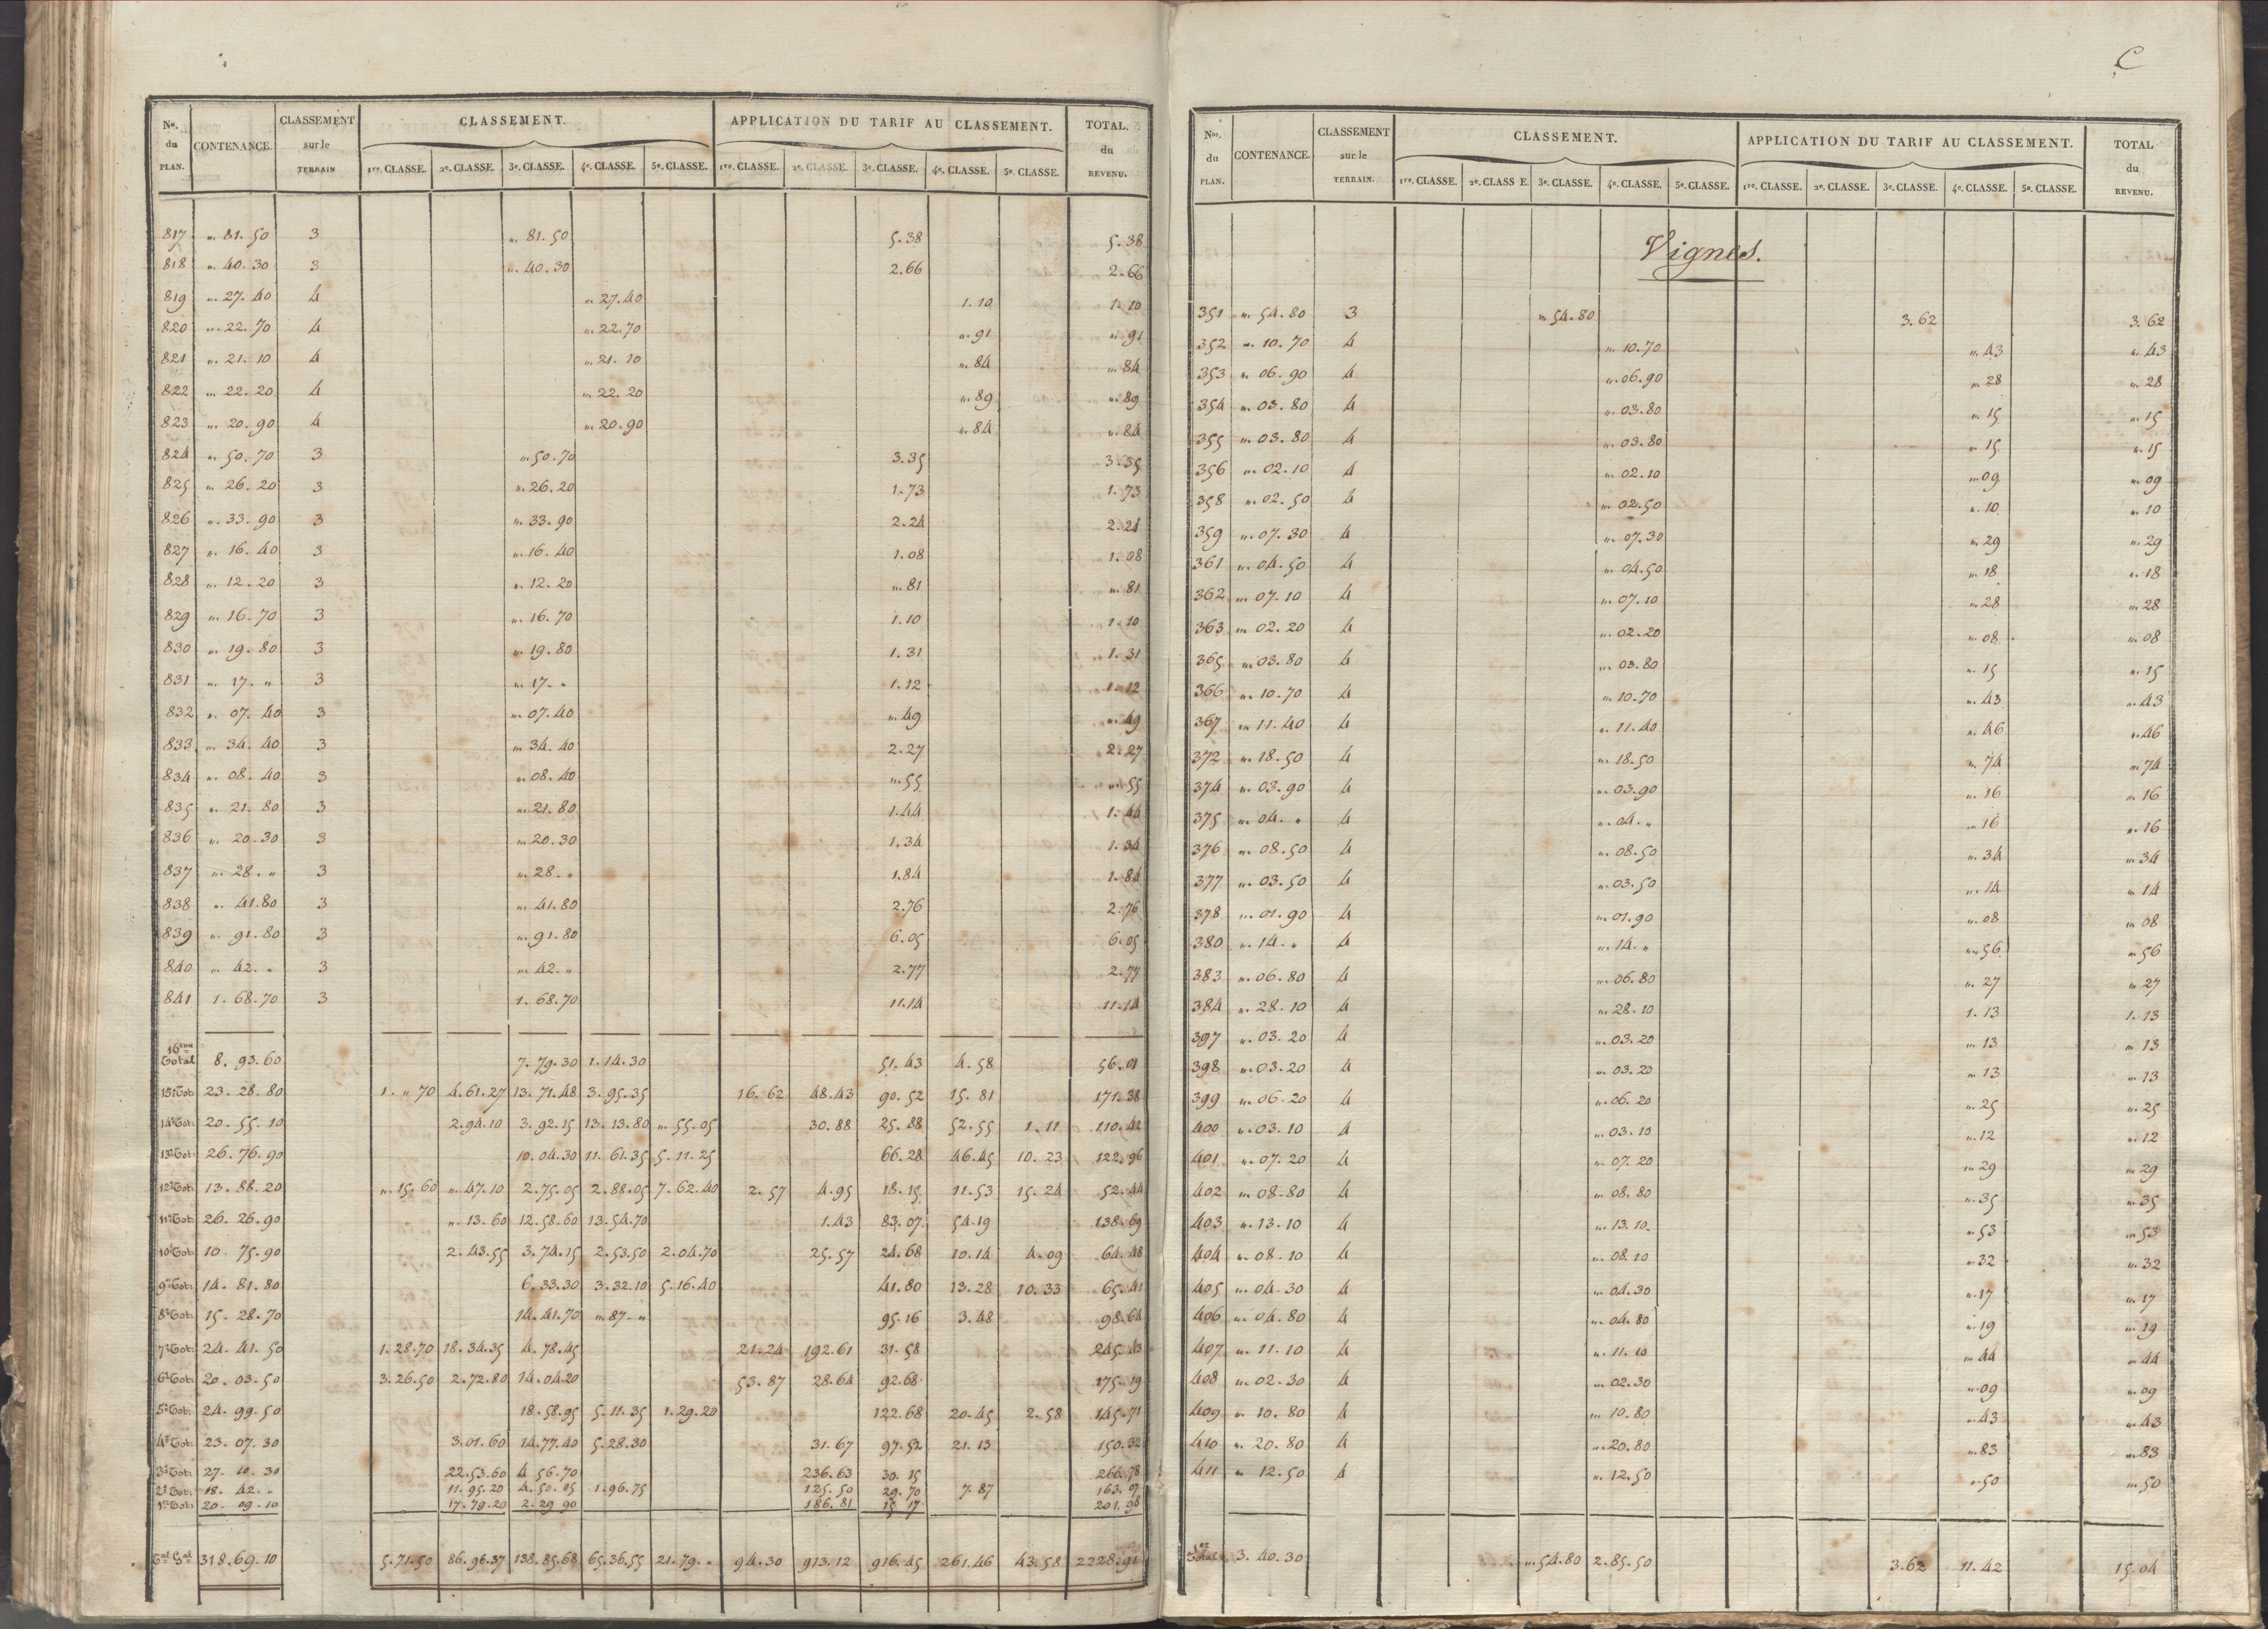 No. du PLAN. CONTENANCE. CLASSEMENT sur le TERRAIN CLASSEMENT. APPLICATION DU TARIF AU CLASSEMENT. TOTAL. du REVENU.
1re. CLASSE. 2e. CLASSE. 3e. CLASSE. 4e. CLASSE. 5e. CLASSE. 1re. CLASSE. 2e. CLASSE. 3e. CLASSE. 4e. CLASSE. 5e. CLASSE.
817 „. 81. 50 3 „. 81. 50 5.38 5.38
818 „. 40. 30 3 „. 40. 30 2.66 2.66
819 „. 27. 40 4 „. 27. 40 1. 10 1. 10
820 „. 22. 70 4 „. 22. 70 „. 91 „. 91
821 „. 21. 10 4 „. 21. 10 „. 84 „. 84
822 „. 22. 20 4 „. 22. 20 „. 89 „. 89
823 „. 20. 90 4 „. 20. 90 „. 84 „. 84
824 „. 50. 70 3 „. 50. 70 3.35 3.35
825 „. 26. 20 3 „. 26. 20 1.73 1.73
826 „. 33. 90 3 „. 33. 90 2.24 2.24
827 „. 16. 40 3 „. 16. 40 1.08 1.08
828 „. 12. 20 3 „. 12. 20 „. 81 „. 81
829 „. 16. 70 3 „. 16. 70 1.10 1.10
830 „. 19. 80 3 „. 19. 80 1.31 1.31
831 „. 17. „ 3 „. 17. „ 1.12 1.12
832 „. 07. 40 3 „. 07. 40 „. 49 „. 49
833 „. 34. 40 3 „. 34. 40 2.27 2.27
834 „. 08. 40 3 „. 08. 40 „. 55 „. 55
835 „. 21. 80 3 „. 21. 80 1.44 1.44
836 „. 20. 30 3 „. 20. 30 1.34 1.34
837 „. 28. „ 3 „. 28. „ 1.84 1.84
838 „. 41. 80 3 „. 41. 80 2.76 2.76
839 „. 91. 80 3 „. 91. 80 6.05 6.05
840 „. 42. „ 3 „. 42. „ 2.77 2.77
841 1. 68. 70 3 1. 68. 70 11.14 11.14
16eme Total 8. 93. 60 7. 79. 30 1. 14. 30 51. 43 4. 58 56. 01
15e Tot: 23. 28. 80 1. „ 70 4. 61. 27 13. 71. 48 3. 95. 35 16. 62 48. 43 90. 52 15. 81 171. 38
14e Tot: 20. 55. 10 2. 94. 10 3. 92. 15 13. 13. 80 „. 55. 05 30. 88 25. 88 52. 55 1. 11 110. 42
13e Tot: 26. 76. 90 10. 04. 30 11. 61. 35 5. 11. 25 66. 28 46. 45 10. 23 122. 96
12e Tot: 13. 88. 20 „. 15. 60 „. 47. 10 2. 75. 05 2. 88. 05 7. 62. 40 2. 57 4. 95 18. 15 11. 53 15. 24 52. 44
11e Tot: 26. 26. 90 „. 13. 60 12. 58. 60 13. 54. 70 1. 43 83. 07 54. 19 138. 69
10e Tot: 10. 75. 90 2. 43. 55 3. 74. 15 2. 53. 50 2. 04. 70 25. 57 24. 68 10. 14 4. 09 64. 48
9e Tot: 14. 81. 80 6. 33. 30 3. 32. 10 5. 16. 40 41. 80 13. 28 10. 33 65. 41
8e Tot: 15. 28. 70 14. 41. 70 „. 87. „ 95. 16 3. 48 98. 64
7e Tot: 24. 41. 50 1. 28. 70 18. 34. 35 4. 78. 45 21. 24 192. 61 31. 58 245. 43
6e Tot: 20. 03. 50 3. 26. 50 2. 72. 80 14. 04. 20 53. 87 28. 64 92. 68 175. 19
5e Tot: 24. 99. 50 18. 58. 95 5. 11. 35 1. 29. 20 122. 68 20. 45 2. 58 145. 71
4e Tot: 23. 07. 30 3. 01. 60 14. 77. 40 5. 28. 30 31. 67 97. 52 21. 13 150. 32
3e Tot: 27. 10. 30 22. 53. 60 4. 56. 70 236. 63 30. 15 266. 78
2e Tot: 18. 42. „ 11. 95. 20 4. 50. 05 1. 96. 75 125. 50 29. 70 7. 87 163. 07
1er Tot: 20. 09. 10 17. 79. 20 2. 29. 90 186. 81 15. 17 201. 98
Tal Gal 318. 69. 10 5. 71. 50 86. 96. 37 138. 85. 68 65. 36. 55 21. 79. „ 94. 30 913. 12 916. 45 261. 46 43. 58 2228. 91
C
Nos. du PLAN. CONTENANCE. CLASSEMENT sur le TERRAIN. CLASSEMENT. APPLICATION DU TARIF AU CLASSEMENT. TOTAL du REVENU.
1re. CLASSE. 2e. CLASS E. 3e. CLASSE. 4e. CLASSE. 5e. CLASSE. 1re. CLASSE. 2e. CLASSE. 3e. CLASSE. 4e. CLASSE. 5e. CLASSE.
Vignes.
351 „. 54. 80 3 „. 54. 80 3. 62 3. 62
352 „. 10. 70 4 „. 10. 70 „. 43 „. 43
353 „. 06. 90 4 „. 06. 90 „. 28 „. 28
354 „. 03. 80 4 „. 03. 80 „. 15 „. 15
355 „. 03. 80 4 „. 03. 80 „. 15 „. 15
356 „. 02. 10 4 „. 02. 10 „. 09 „. 09
358 „. 02. 50 4 „. 02. 50 „. 10 „. 10
359 „. 07. 30 4 „. 07. 30 „. 29 „. 29
361 „. 04. 50 4 „. 04. 50 „. 18 „. 18
362 „. 07. 10 4 „. 07. 10 „. 28 „. 28
363 „. 02. 20 4 „. 02. 20 „. 08 „. 08
365 „. 03. 80 4 „. 03. 80 „. 15 „. 15
366 „. 10. 70 4 „. 10. 70 „. 43 „. 43
367 „. 11. 40 4 „. 11. 40 „. 46 „. 46
372 „. 18. 50 4 „. 18. 50 „. 74 „. 74
374 „. 03. 90 4 „. 03. 90 „. 16 „. 16
375 „. 04. „ 4 „. 04. „ „. 16 „. 16
376 „. 08. 50 4 „. 08. 50 „. 34 „. 34
377 „. 03. 50 4 „. 03. 50 „. 14 „. 14
378 „. 01. 90 4 „. 01. 90 „. 08 „. 08
380 „. 14. „ 4 „. 14. „ „. 56 „. 56
383 „. 06. 80 4 „. 06. 80 „. 27 „. 27
384 „. 28. 10 4 „. 28. 10 1. 13 1. 13
397 „. 03. 20 4 „. 03. 20 „. 13 „. 13
398 „. 03. 20 4 „. 03. 20 „. 13 „. 13
399 „. 06. 20 4 „. 06. 20 „. 25 „. 25
400 „. 03. 10 4 „. 03. 10 „. 12 „. 12
401 „. 07. 20 4 „. 07. 20 „. 29 „. 29
402 „. 08. 80 4 „. 08. 80 „. 35 „. 35
403 „. 13. 10 4 „. 13. 10 „. 53 „. 53
404 „. 08. 10 4 „. 08. 10 „. 32 „. 32
405 „. 04. 30 4 „. 04. 30 „. 17 „. 17
406 „. 04. 80 4 „. 04. 80 „. 19 „. 19
407 „. 11. 10 4 „. 11. 10 „. 44 „. 44
408 „. 02. 30 4 „. 02. 30 „. 09 „. 09
409 „. 10. 80 4 „. 10. 80 „. 43 „. 43
410 „. 20. 80 4 „. 20. 80 „. 83 „. 83
411 „. 12. 50 4 „. 12. 50 „. 50 „. 50
1er Total 3. 40. 30 „. 54. 80 2. 85. 50 3. 62 11. 42 15. 04